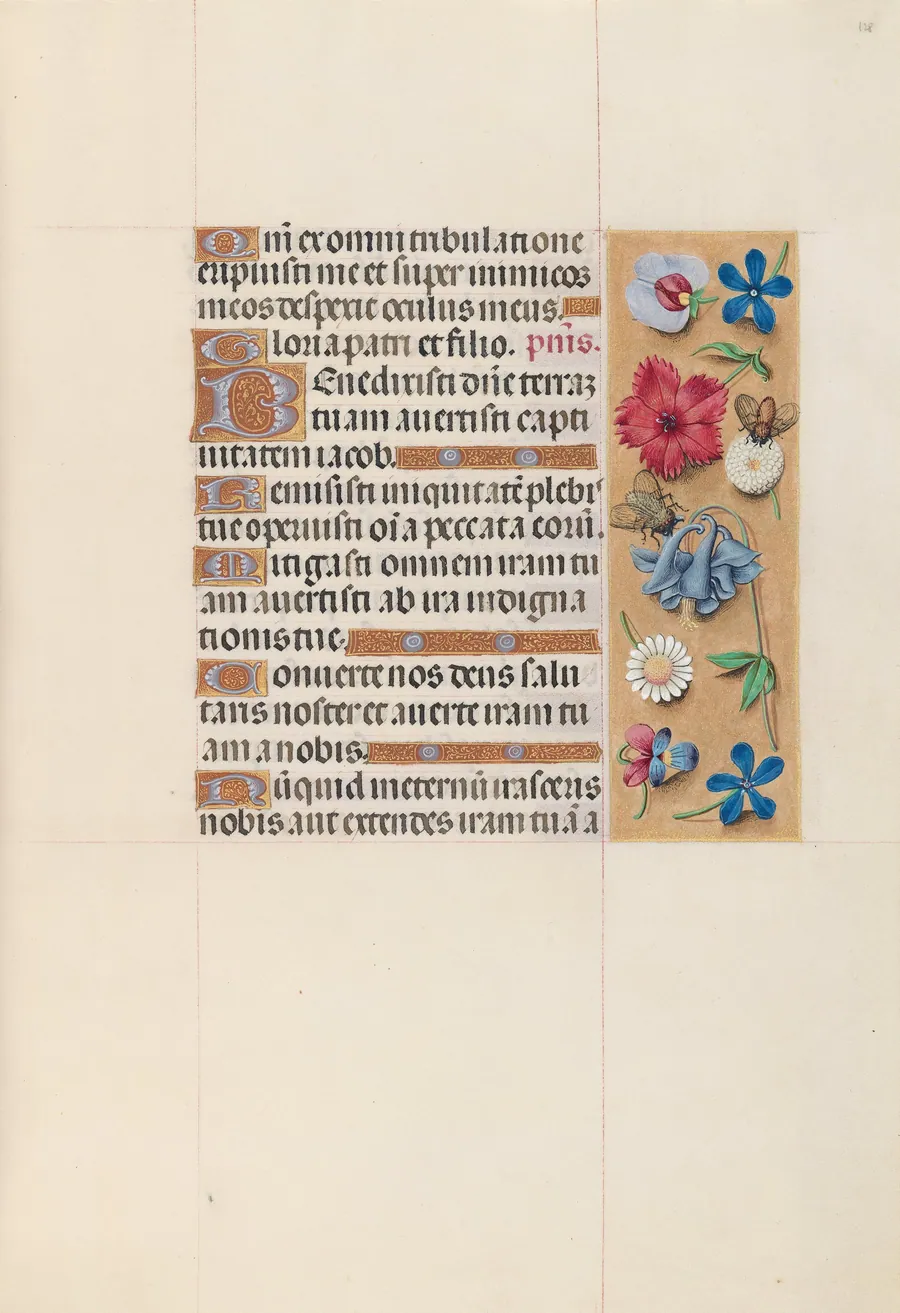 128
Qm̄ ex omni tribulatione
eripuisti me et super inimicos
meos despexit oculus meus.
Gloria patri et filio. pm̄s.
Benedixisti dn̄e terraz
tuam avertisti capti
vitatem iacob.
Remisisti iniquitatē plebis
tue operuisti oīa peccata eorū.
Mitigasti omnem iram tu
am avertisti ab ira indigna
tionis tue.
Converte nos deus salu
taris noster et averte iram tu
am a nobis.
Nūquid in eternū irasceris
nobis aut extendes iram tuā a